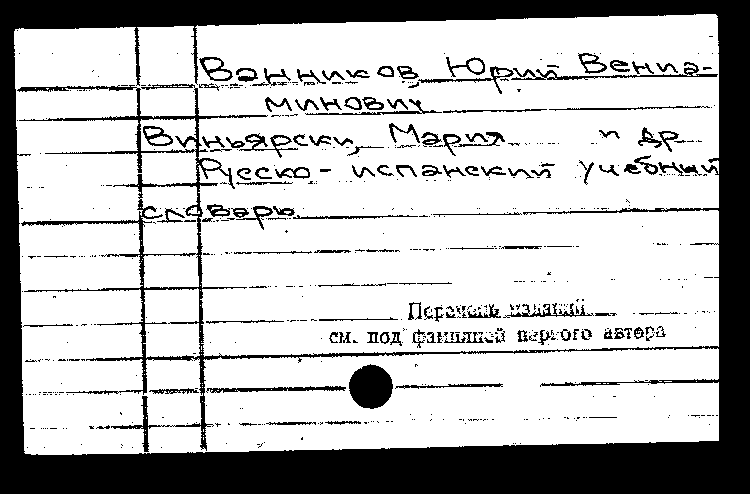 Ванников, Юрий Вениа-
минович
Виньярски, Мария и др
Русско-испанский учебный
словарь
Перечень изданий
см. под фамилией первого автора